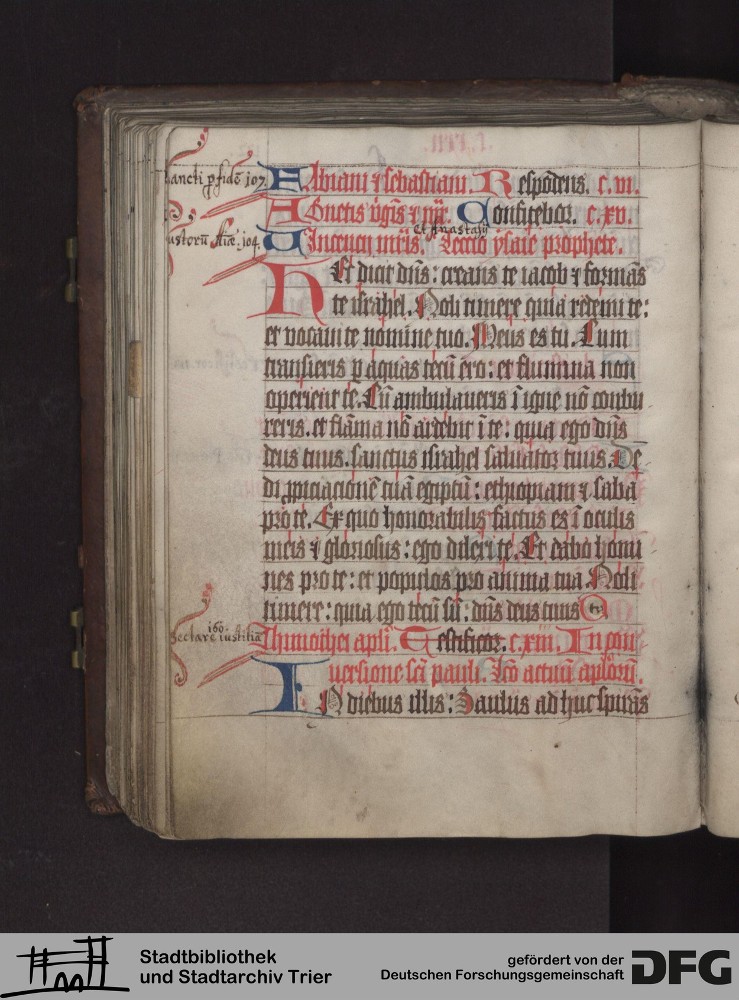 Fabiani ⁊ sebastiani. Respōdens. c. vi.
sancti p fidē 107.
Agnetis v̄gīs ⁊ mr̄. Confitebor. c. xv.
Et Anastasij
Uincencij mr̄is. Leccio ysaie prophete.
iustorū aīe. 104.
Hec dicit dn̄s: creans te iacob ⁊ formās
te israhel. Noli timere quia redemi te:
et vocaui te nomine tuo. Meus es tu. Cum
transieris p aquas tecū ero: et flumina non
operient te. Cū ambulaueris ī igne nō conbu
reris. et flāma nō ardebit ī te: quia ego dn̄s
deus tuus. sanctus israhel saluator tuus. De
di ꝓpiciacionē tuā egiptū: ethiopiam ⁊ saba
pro te. Ex quo honorabilis factus es ī oculis
meis ⁊ gloriosus: ego dilexi te. Et dabo homi
nes pro te: et populos pro anima tua. Noli
timere: quia ego tecū sū: dn̄s deus tuus
Thimothei apl̄i. Testificor. c. xiii. In con
sectare iustitiā 160.
uersione sc̄i pauli. Lc̄o actuū apl̄orū.
In diebus illis: Saulus adhuc spirās
Stadtbibliothek
und Stadtarchiv Trier
gefördert von der
Deutschen Forschungsgemeinschaft
DFG